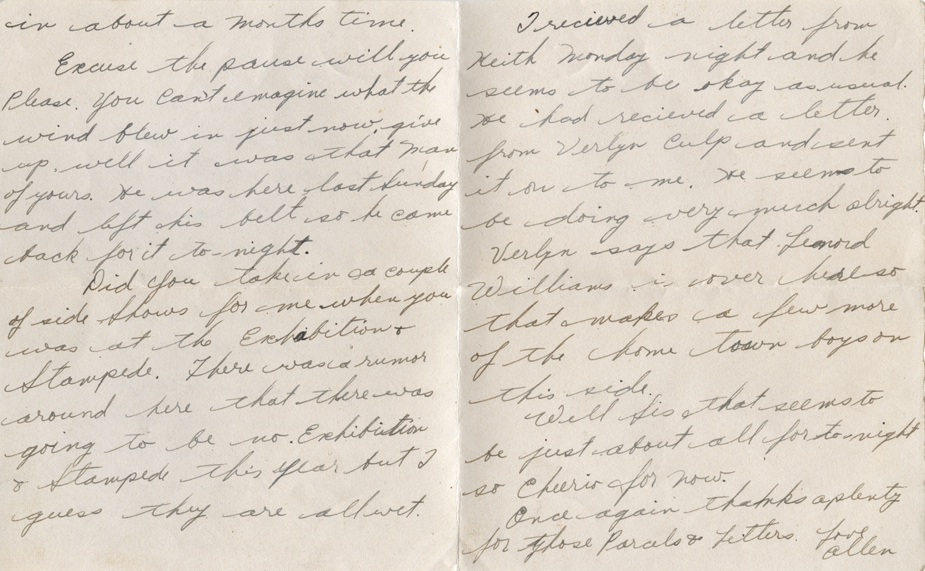 in about a months time.
Excuse the pause will you
Please. You can't emagine what the
wind blew in just now, give
up, well it was that Man
of yours. He was here last Sunday
and left his belt so he came
back for it to-night.
Did you take in a couple
of side shows for me when you
was at the Exhibition &
Stampede. There was a rumor
around here that there was
going to be no. Exhibition
& Stampede this year but I
guess they are all wet.
I recieved a letter from
Keith Monday night and he
seems to be okay as usual.
He had recieved a letter.
from Verlyn Culp and sent
it on to me. He seems to
be doing very much alright.
Verlyn says that Lenord
Williams is over here so
that makes a few more
of the home town boys on
this side.
Well Sis that seems to
be just about all for to-night
so Cheerio for now.
Once again thanks aplenty
for those Parcels & Letters. Love
Allen